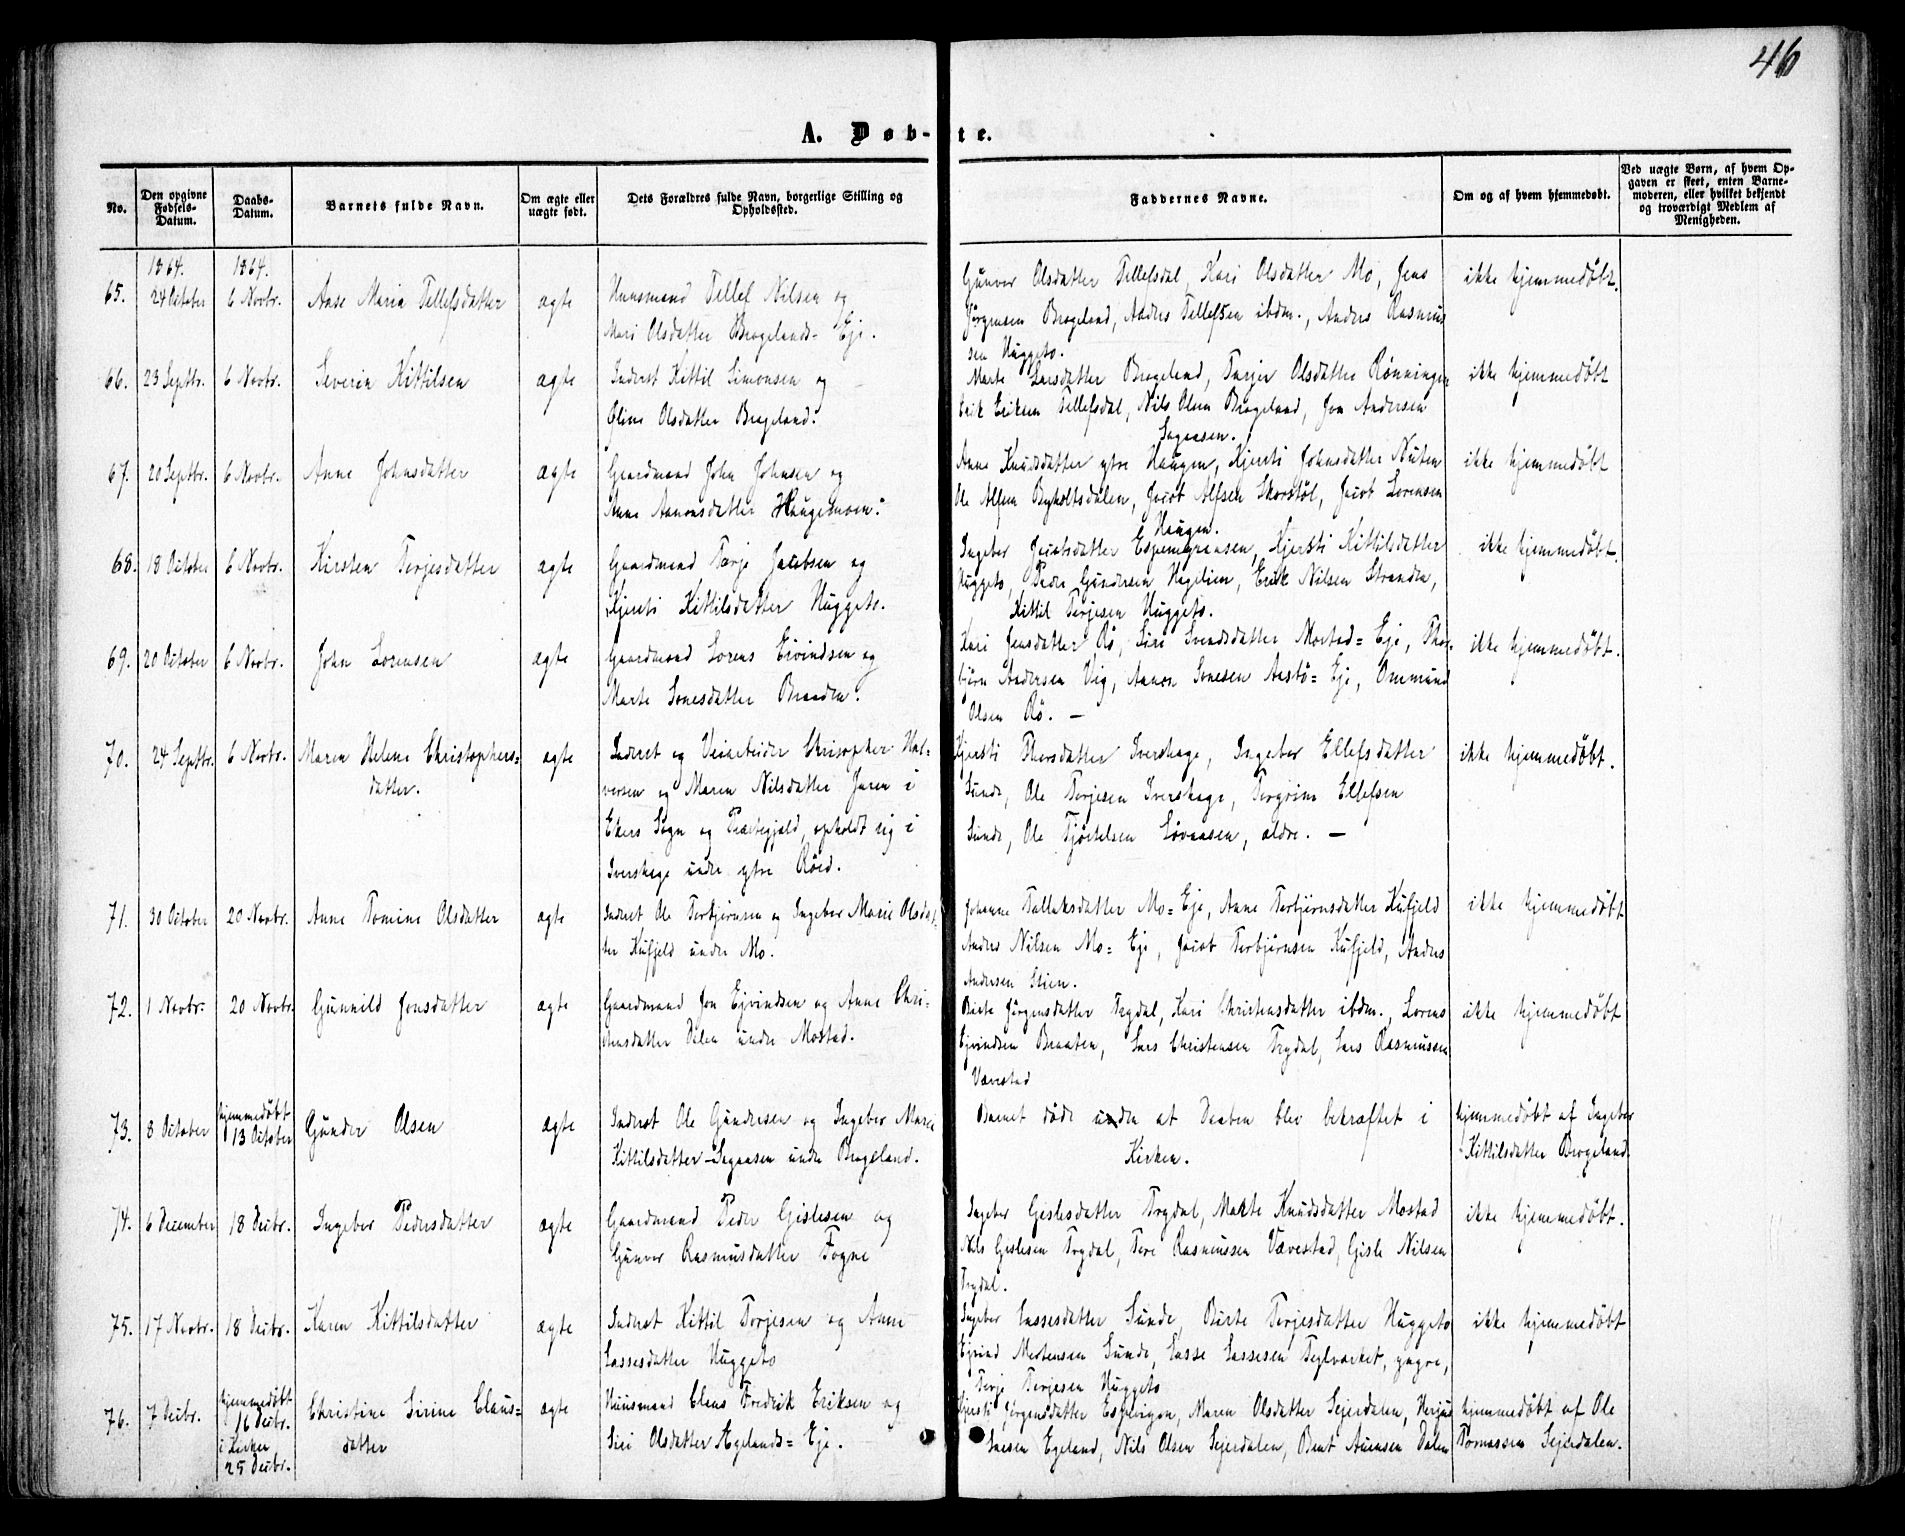 46
A. Døbte.
No.
Den opgivne Fødsels-Datum.
Daabs-Datum.
Barnets fulde Navn.
Om ægte eller uægte født.
Dets Forældres fulde Navn, borgerlige Stilling og Opholdssted.
Faddernes Navne.
Om og af hvem hjemmedøbt.
Ved uægte Børn, af hvem Opgaven er skeet, enten Barnemoderen, eller hvilket bekjendt og troværdigt Medlem af Menigheden.
1864. 1864.
65. 24 October 6 Novbr. Aase Maria Tellefsdatter ægte Huusmand Tellef Nilsen og
Mari Olsdatter Brogelands-Eje.
Gunvor Olsdatter Tellefsdal, Kari Olsdatter Mo, Jens
Jörgensen Brogeland, Anders Tellefsen ibdm., Anders Rasmus
sen Huggeto.
ikke hjemmedøbt.
66. 23 Septbr. 6 Novbr. Severin Kittilsen ægte Inderst Kittil Simonsen og
Oline Olsdatter Brogeland.
Marte Larsdatter Brogeland, Tarjer Olsdatter Rönningen
Erik Eriksen Tellefsdal, Nils Olsen Brogeland, Jon Andersen
Sagaasen.
ikke hjemmedøbt
67. 20 Septbr. 6 Novbr. Anne Johnsdatter ægte Gaardmand John Johnsen og
Anne Aanonsdatter Haugemoen.
Anne Knudsdatter ytre Haugen, Kjersti Johnsdatter Nuten
Ole Alfsen Bryholtsdalen, Jacob Alfsen Skorstöl, Jacob Lorensen
Haugen.
ikke hjemmedøbt
68. 18 October 6 Novbr. Kirsten Terjesdatter ægte Gaardmand Terje Jacobsen og
Kjersti Kittilsdatter Huggeto.
Ingebor Jacobsdatter Espemgrensen, Kjersti Kittilsdatter
Huggeto, Peder Gundersen Hegelien, Erik Nilsen Stranden,
Kittil Terjesen Huggeto.
ikke hjemmedøbt.
69. 20 October 6 Novbr. John Lorensen ægte Gaardmand Lorens Eivindsen og
Marte Tonesdatter Braaden.
Kari Jensdatter Rö, Siri Svendsdatter Mostad-Eje, Thor-
björn Andersen Vig, Aanon Tonesen Aastö-Eje, Ommund
Olsen Rö. —
ikke hjemmedøbt.
70. 24 Septbr. 6 Novbr. Maren Helene Christophers-
datter.
ægte Inderst og Veiarbeider Chrisopher Hal-
vorsen og Maren Nilsdatter Juren i
Ekers Sogn og Præstegjeld, opholdt sig i
Iverskage under ytre Röed.
Kjersti Thorsdatter Iverskage, Ingebor Ellefsdatter
Sunde, Ole Terjesen Iverskage, Torgrim Ellefsen
Sunde, Ole Tjöstelsen Lövaasen, ældre. —
ikke hjemmedøbt.
71. 30 October 20 Novbr. Anne Tomine Olsdatter ægte Inderst Ole Torbjörnsen og Ingebor Marie Olsdat-
ter Kufjeld under Mo.
Johanne Tallaksdatter Mo-Eje, Anne Torbjörnsdatter Kufjeld
Anders Nilsen Mo-Eje, Jacob Torbjörnsen Kufjeld, Anders
Andersen Stien.
ikke hjemmedøbt
72. 1 Novbr. 20 Novbr. Gunnild Jonsdatter ægte Gaardmand Jon Ejvindsen og Anne Chri-
stensdatter Dalen under Mostad.
Berte Jörgensdatter Trydal, Kari Christensdatter ibdm., Lorens
Ejvindsen Braaten, Lars Christensen Trydal, Lars Rasmussen
Vævestad
ikke hjemmedøbt
73. 8 October hjemmedöbt
13 October
Gunder Olsen ægte Inderst Ole Gundersen og Ingebor Marie
Kittilsdatter Sagaasen under Brogeland.
Barnet döde inden at Daaben blev bekræftet i
Kirken.
hjemmedöbt af Ingebor
Kittilsdatter Brogeland.
74. 6 December 18 Decbr. Ingebor Pedersdatter ægte Gaardmand Peder Gislesen og
Gunvor Rasmusdatter Fogne
Ingebor Gislesdatter Trydal, Marte Knudsdatter Mostad
Nils Gislesen Trydal, Tore Rasmussen Vævestad, Gisle Nilsen
Trydal.
ikke hjemmedöbt.
75. 17 Novbr. 18 Decbr. Karen Kittilsdatter ægte Inderst Kittil Terjesen og Anne
Lassesdatter Huggeto
Ingebor Lassesdatter Sunde, Birte Terjesdatter Huggeto
Ejvind Mortensen Sunde, Lasse Lassesen Teglværket, yngre,
Terje Terjesen Huggeto
ikke hjemmedøbt
76. 7 Decbr. hjemmedöbt
16 Decbr.
i Kirken
25 Decbr.
Christine Sirine Claus-
datter
ægte Huusmand Claus Fredrik Eriksen og
Siri Olsdatter Egelands-Eje.
Kjersti Jörgensdatter Espevigen, Maren Olsdatter Sejerdalen, Herjus
Egeland, Nils Olsen Sejerdalen, Bent Dalen
hjemmedøbt af Ole
Tomassen Sejerdalen.